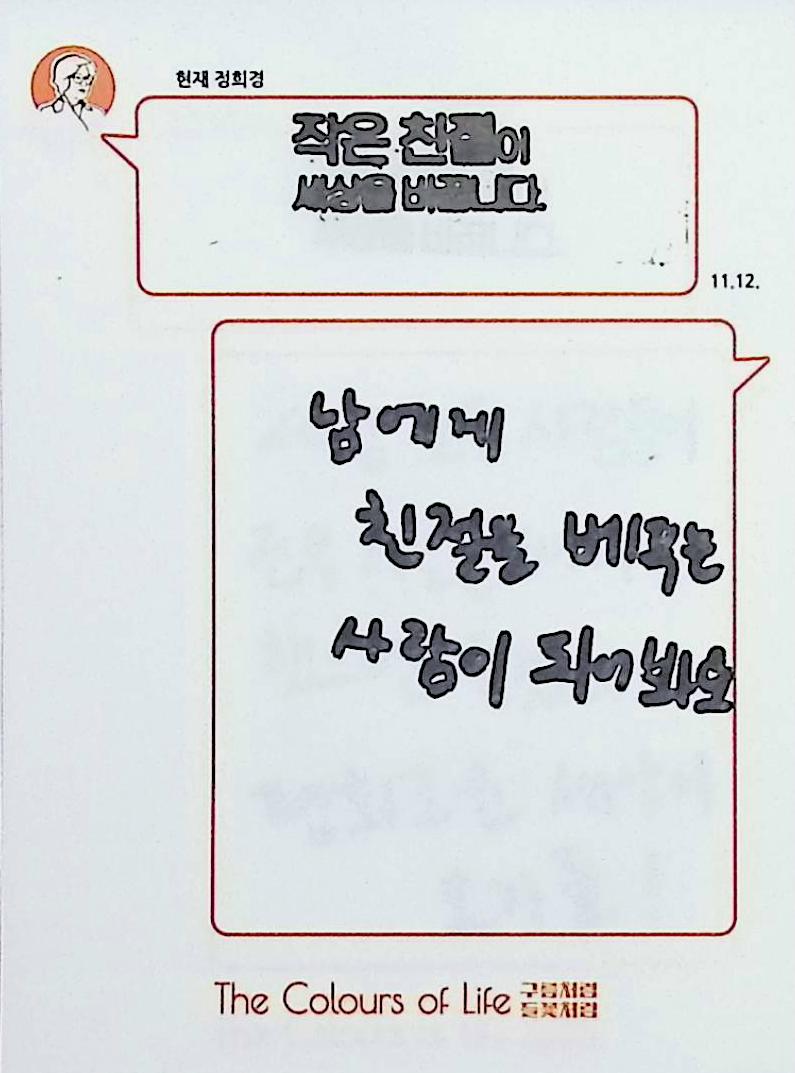 현재 정희경
작은 친절이
세상을 바꿉니다.
11.12.
남에게
친절을 베푸는
사람이 되어봐요
The Colours of Life 구름처럼
들꽃처럼